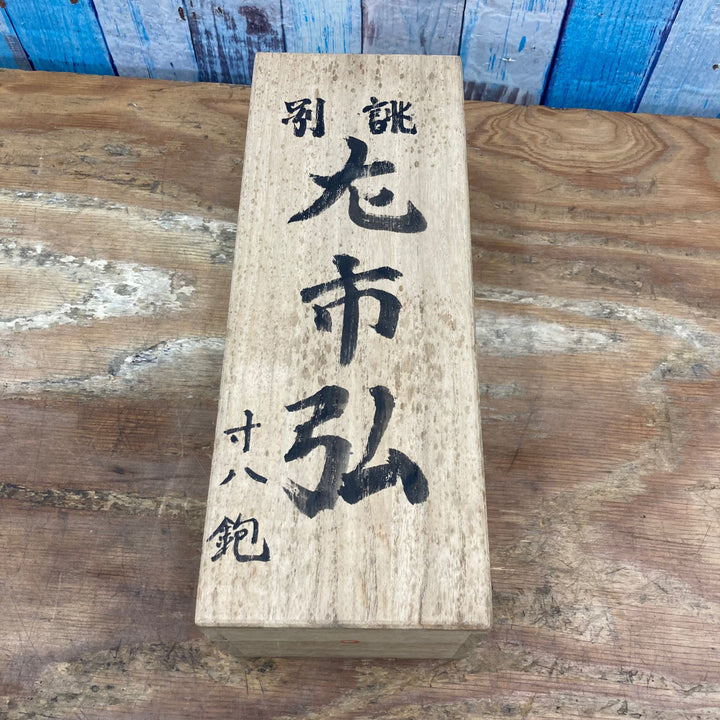 別誂
左市弘
寸八鉋